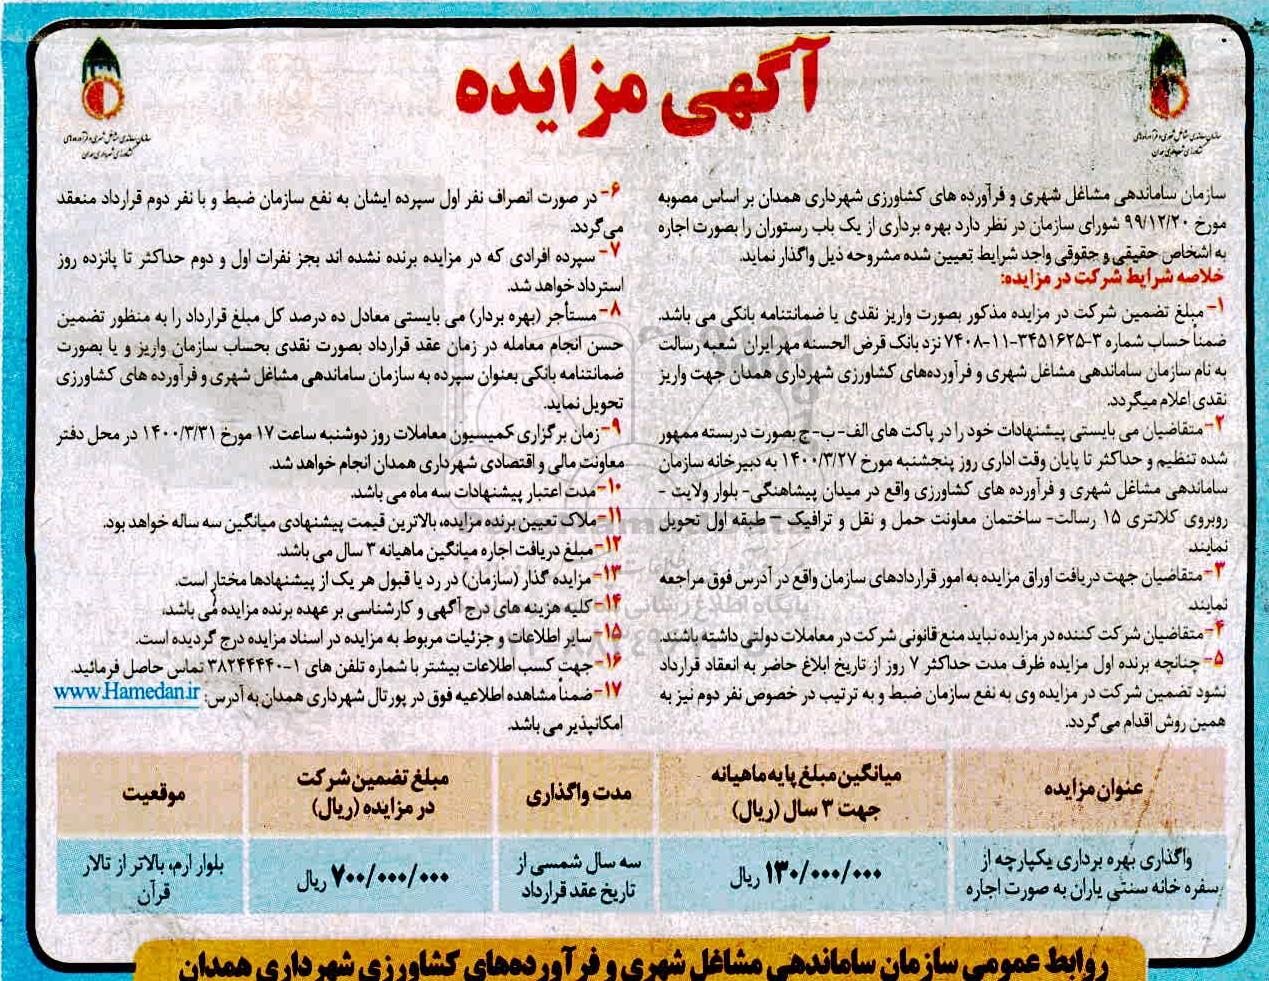 آگهی مزایده
سازمان ساماندهی مشاغل شهری و فرآورده های
کشاورزی شهرداری همدان
سازمان ساماندهی مشاغل شهری و فرآورده های
کشاورزی شهرداری همدان
سازمان ساماندهی مشاغل شهری و فرآورده های کشاورزی شهرداری همدان بر اساس مصوبه
مورخ ۹۹/۱۲/۲۰ شورای سازمان در نظر دارد بهره برداری از یک باب رستوران را بصورت اجاره
به اشخاص حقیقی و حقوقی واجد شرایط تعیین شده مشروحه ذیل واگذار نماید.
خلاصه شرایط شرکت در مزایده:
۱- مبلغ تضمین شرکت در مزایده مذکور بصورت واریز نقدی یا ضمانتنامه بانکی می باشد.
ضمناً حساب شماره ۳-۳۴۵۱۶۲۵-۱۱-۷۴۰۸ نزد بانک قرض الحسنه مهر ایران شعبه رسالت
به نام سازمان ساماندهی مشاغل شهری و فرآورده‌های کشاورزی شهرداری همدان جهت واریز
نقدی اعلام میگردد.
۲- متقاضیان می بایستی پیشنهادات خود را در پاکت های الف- ب- ج بصورت دربسته ممهور
شده تنظیم و حداکثر تا پایان وقت اداری روز پنجشنبه مورخ ۱۴۰۰/۳/۲۷ به دبیرخانه سازمان
ساماندهی مشاغل شهری و فرآورده های کشاورزی واقع در میدان پیشاهنگی- بلوار ولایت -
روبروی کلانتری ۱۵ رسالت- ساختمان معاونت حمل و نقل و ترافیک - طبقه اول تحویل
نمایند.
۳- متقاضیان جهت دریافت اوراق مزایده به امور قراردادهای سازمان واقع در آدرس فوق مراجعه
نمایند.
۴- متقاضیان شرکت کننده در مزایده نباید منع قانونی شرکت در معاملات دولتی داشته باشند.
۵- چنانچه برنده اول مزایده ظرف مدت حداکثر ۷ روز از تاریخ ابلاغ حاضر به انعقاد قرارداد
نشود تضمین شرکت در مزایده وی به نفع سازمان ضبط و به ترتیب در خصوص نفر دوم نیز به
همین روش اقدام می گردد.
۶- در صورت انصراف نفر اول سپرده ایشان به نفع سازمان ضبط و با نفر دوم قرارداد منعقد
می‌گردد.
۷- سپرده افرادی که در مزایده برنده نشده اند بجز نفرات اول و دوم حداکثر تا پانزده روز
استرداد خواهد شد.
۸- مستأجر (بهره بردار) می بایستی معادل ده درصد کل مبلغ قرارداد را به منظور تضمین
حسن انجام معامله در زمان عقد قرارداد بصورت نقدی بحساب سازمان واریز و یا بصورت
ضمانتنامه بانکی بعنوان سپرده به سازمان ساماندهی مشاغل شهری و فرآورده های کشاورزی
تحویل نماید.
۹- زمان برگزاری کمیسیون معاملات روز دوشنبه ساعت ۱۷ مورخ ۱۴۰۰/۳/۳۱ در محل دفتر
معاونت مالی و اقتصادی شهرداری همدان انجام خواهد شد.
۱۰- مدت اعتبار پیشنهادات سه ماه می باشد.
۱۱- ملاک تعیین برنده مزایده، بالاترین قیمت پیشنهادی میانگین سه ساله خواهد بود.
۱۲- مبلغ دریافت اجاره میانگین ماهیانه ۳ سال می باشد.
۱۳- مزایده گذار (سازمان) در رد یا قبول هر یک از پیشنهادها مختار است.
۱۴- کلیه هزینه های درج آگهی و کارشناسی بر عهده برنده مزایده می باشد.
۱۵- سایر اطلاعات و جزئیات مربوط به مزایده در اسناد مزایده درج گردیده است.
۱۶- جهت کسب اطلاعات بیشتر با شماره تلفن های ۱-۳۸۲۴۴۴۴۰ تماس حاصل فرمائید.
۱۷- ضمناً مشاهده اطلاعیه فوق در پورتال شهرداری همدان به آدرس: www.Hamedan.ir
امکانپذیر می باشد.
عنوان مزایده
میانگین مبلغ پایه ماهیانه
جهت ۳ سال (ریال)
مدت واگذاری
مبلغ تضمین شرکت
در مزایده (ریال)
موقعیت
واگذاری بهره برداری یکپارچه از
سفره خانه سنتی یاران به صورت اجاره
۱۳۰/۰۰۰/۰۰۰ ریال
سه سال شمسی از
تاریخ عقد قرارداد
۷۰۰/۰۰۰/۰۰۰ ریال
بلوار ارم، بالاتر از تالار
قرآن
روابط عمومی سازمان ساماندهی مشاغل شهری و فرآورده‌های کشاورزی شهرداری همدان